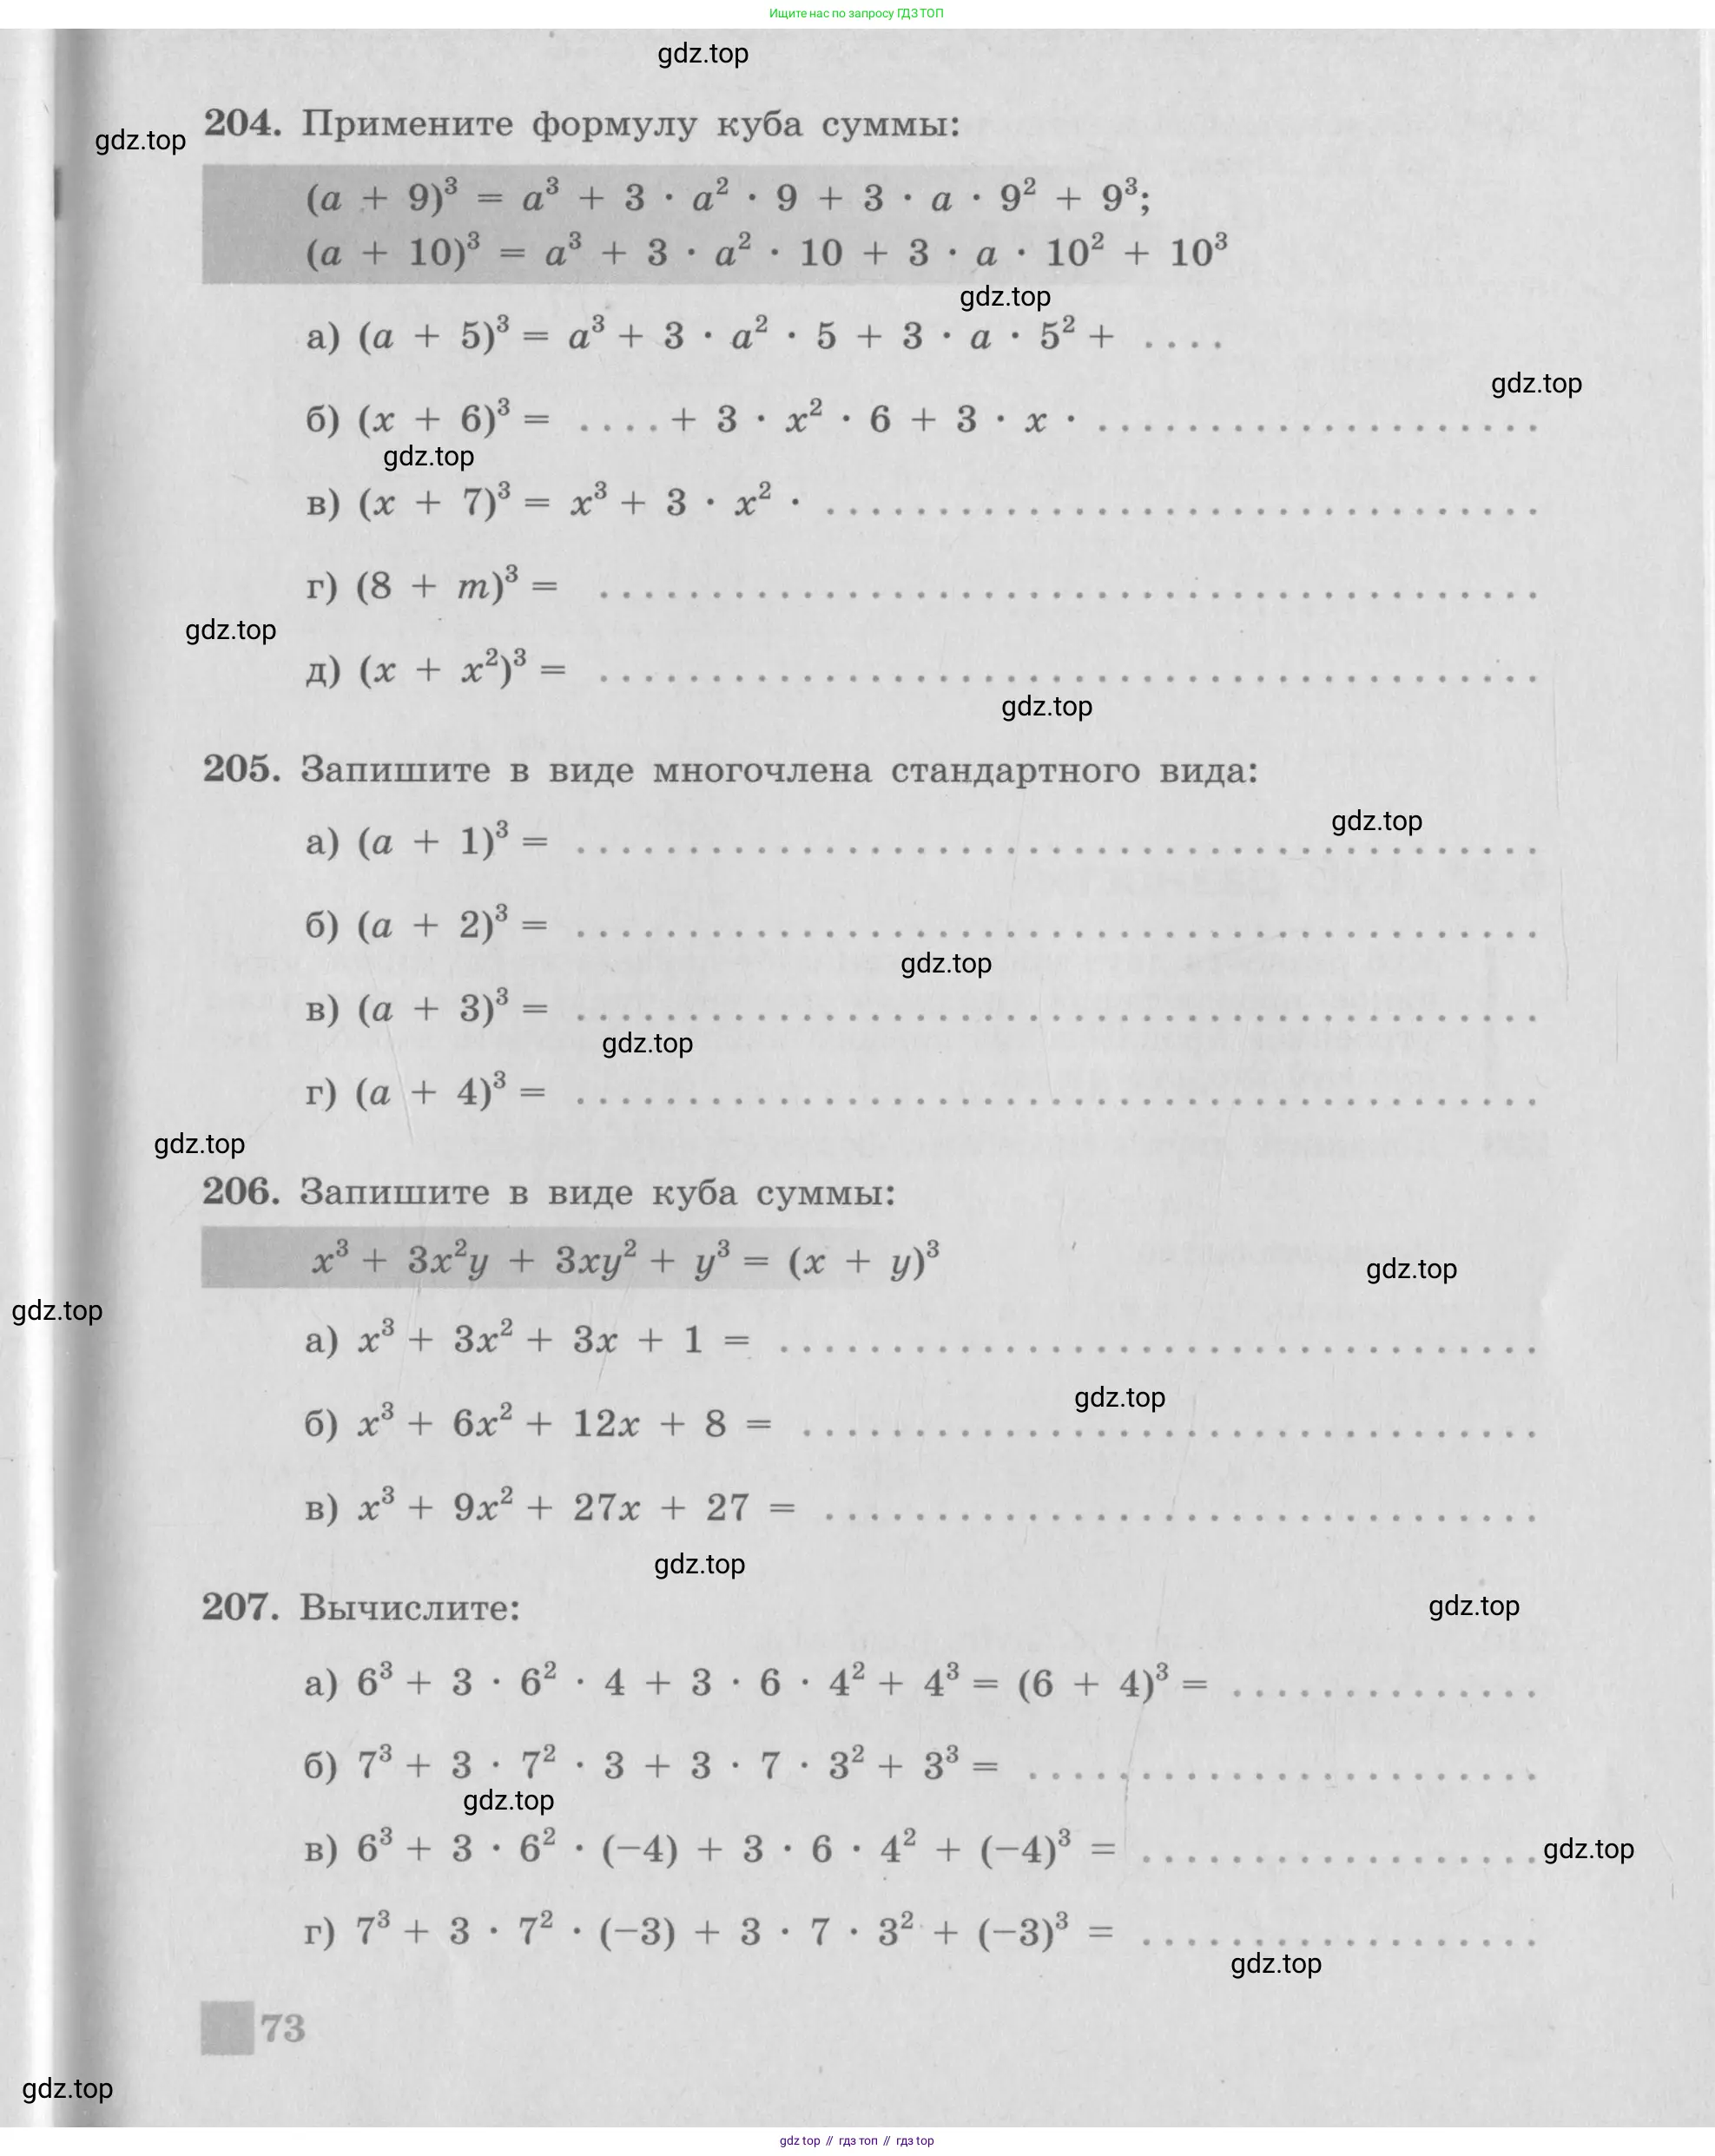 Ищите нас по запросу ГДЗ ТОП
gdz.top
204. Примените формулу куба суммы:
gdz.top
(a + 9)³ = a³ + 3 · a² · 9 + 3 · a · 9² + 9³;
(a + 10)³ = a³ + 3 · a² · 10 + 3 · a · 10² + 10³
gdz.top
а) (a + 5)³ = a³ + 3 · a² · 5 + 3 · a · 5² + ....
gdz.top
б) (x + 6)³ = .... + 3 · x² · 6 + 3 · x · ....................
gdz.top
в) (x + 7)³ = x³ + 3 · x² · ................................
г) (8 + m)³ = ..........................................
gdz.top
д) (x + x²)³ = ..........................................
gdz.top
205. Запишите в виде многочлена стандартного вида:
gdz.top
а) (a + 1)³ = ...........................................
б) (a + 2)³ = ...........................................
gdz.top
в) (a + 3)³ = ...........................................
gdz.top
г) (a + 4)³ = ...........................................
gdz.top
206. Запишите в виде куба суммы:
x³ + 3x²y + 3xy² + y³ = (x + y)³
gdz.top
gdz.top
а) x³ + 3x² + 3x + 1 = ..................................
gdz.top
б) x³ + 6x² + 12x + 8 = .................................
в) x³ + 9x² + 27x + 27 = ................................
gdz.top
207. Вычислите:
gdz.top
а) 6³ + 3 · 6² · 4 + 3 · 6 · 4² + 4³ = (6 + 4)³ = ..............
б) 7³ + 3 · 7² · 3 + 3 · 7 · 3² + 3³ = .......................
gdz.top
в) 6³ + 3 · 6² · (−4) + 3 · 6 · 4² + (−4)³ = ..................
gdz.top
г) 7³ + 3 · 7² · (−3) + 3 · 7 · 3² + (−3)³ = ..................
gdz.top
73
gdz.top
gdz top // гдз топ // гдз top